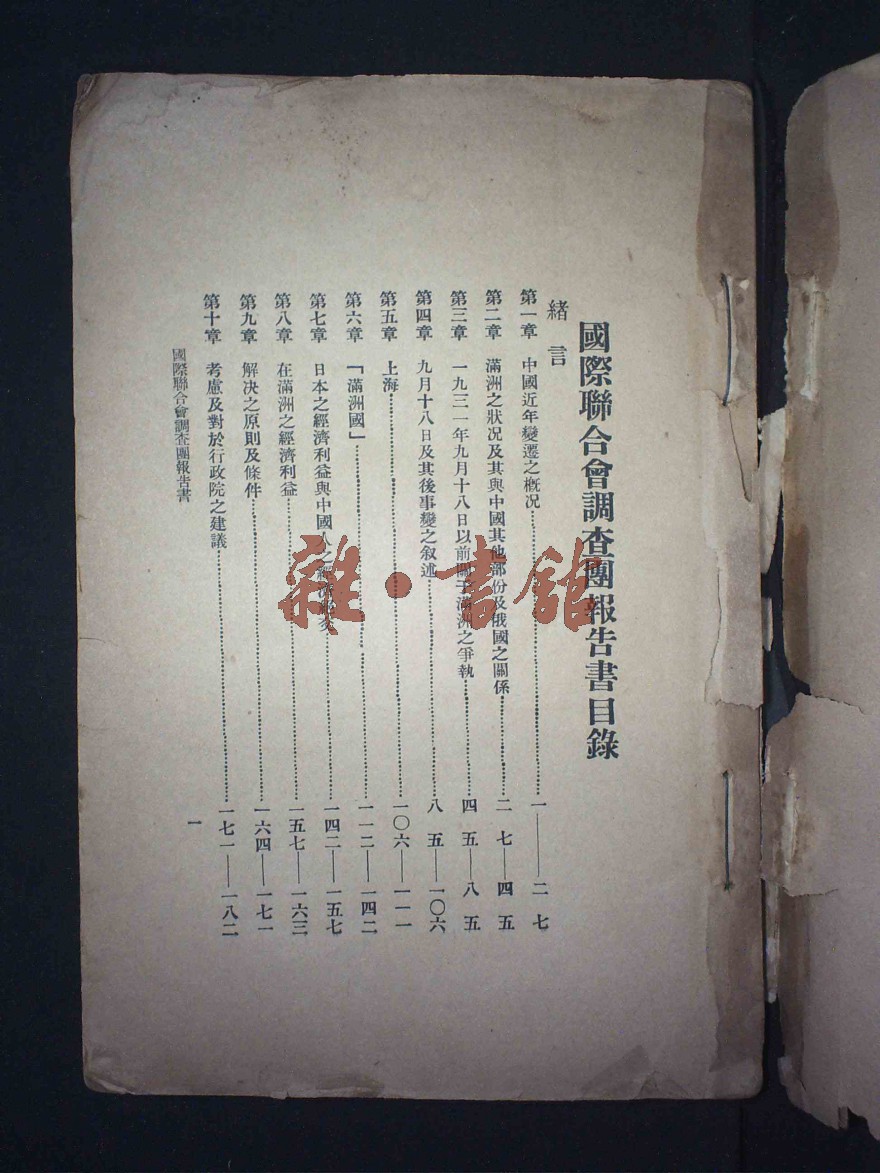 國際聯合會調查團報告書目錄
緒言
第一章 中國近年變遷之概况……一——二七
第二章 滿洲之狀况及其與中國其他部份及俄國之關係……二七——四五
第三章 一九三一年九月十八日以前關于滿洲之爭執……四五——八五
第四章 九月十八日及其後事變之叙述……八五——一〇六
第五章 上海……一〇六——一一一
第六章 「滿洲國」……一一二——一四二
第七章 日本之經濟利益與中國人之經濟……一四二——一五七
第八章 在滿洲之經濟利益……一五七——一六三
第九章 解决之原則及條件……一六四——一七一
第十章 考慮及對於行政院之建議……一七一——一八二
國際聯合會調查團報告書
一
雜·書館